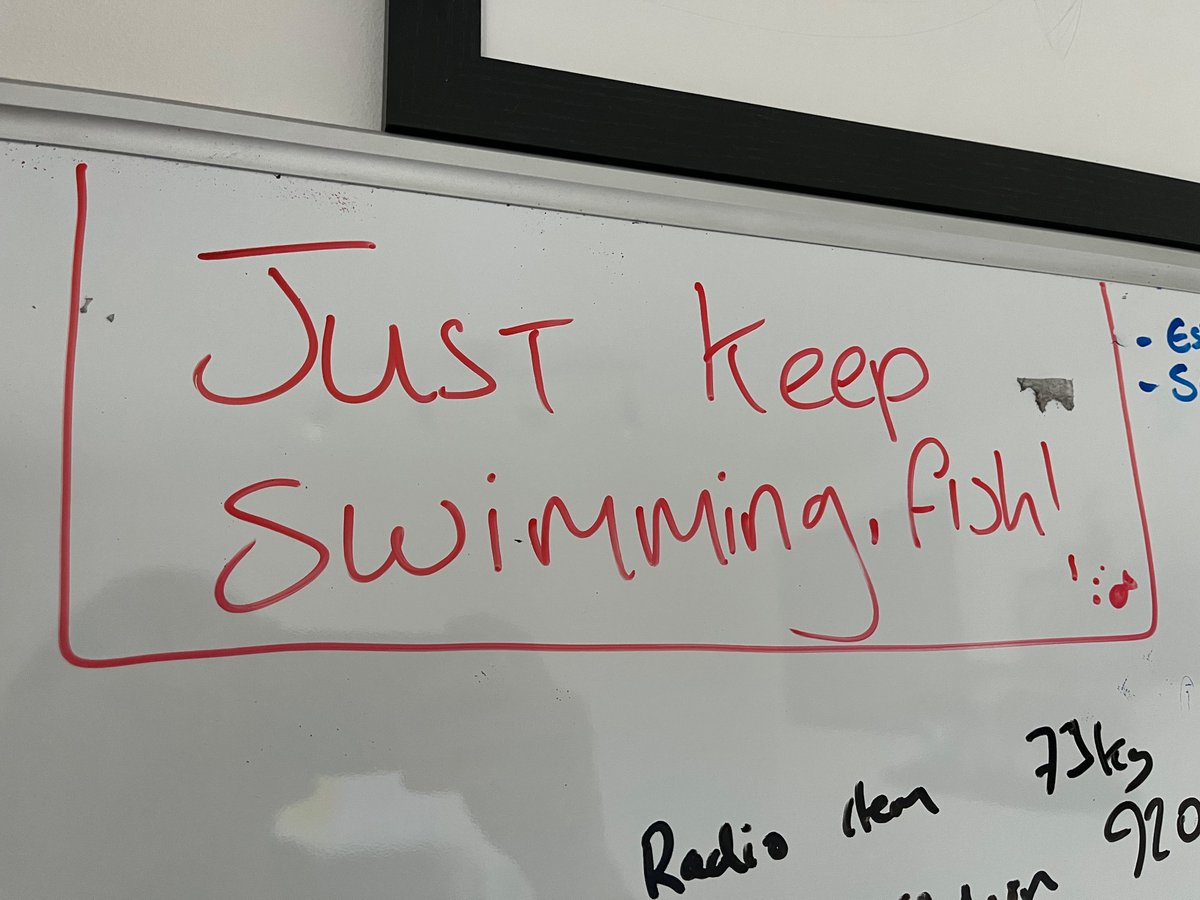 Just keep
swimming, fish!
- Es
- S
Radio item 73kg
920